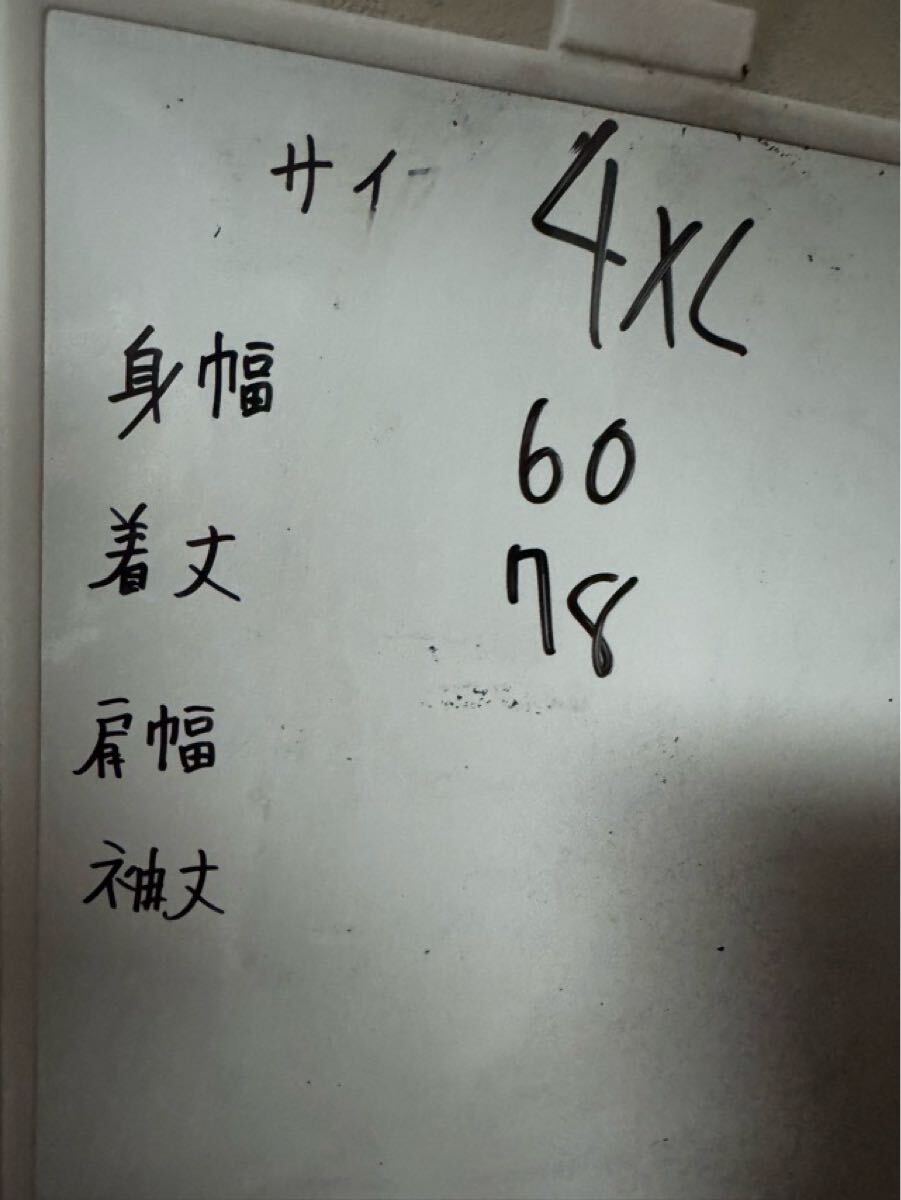 サイ 4XL
身幅 60
着丈 78
肩幅
袖丈